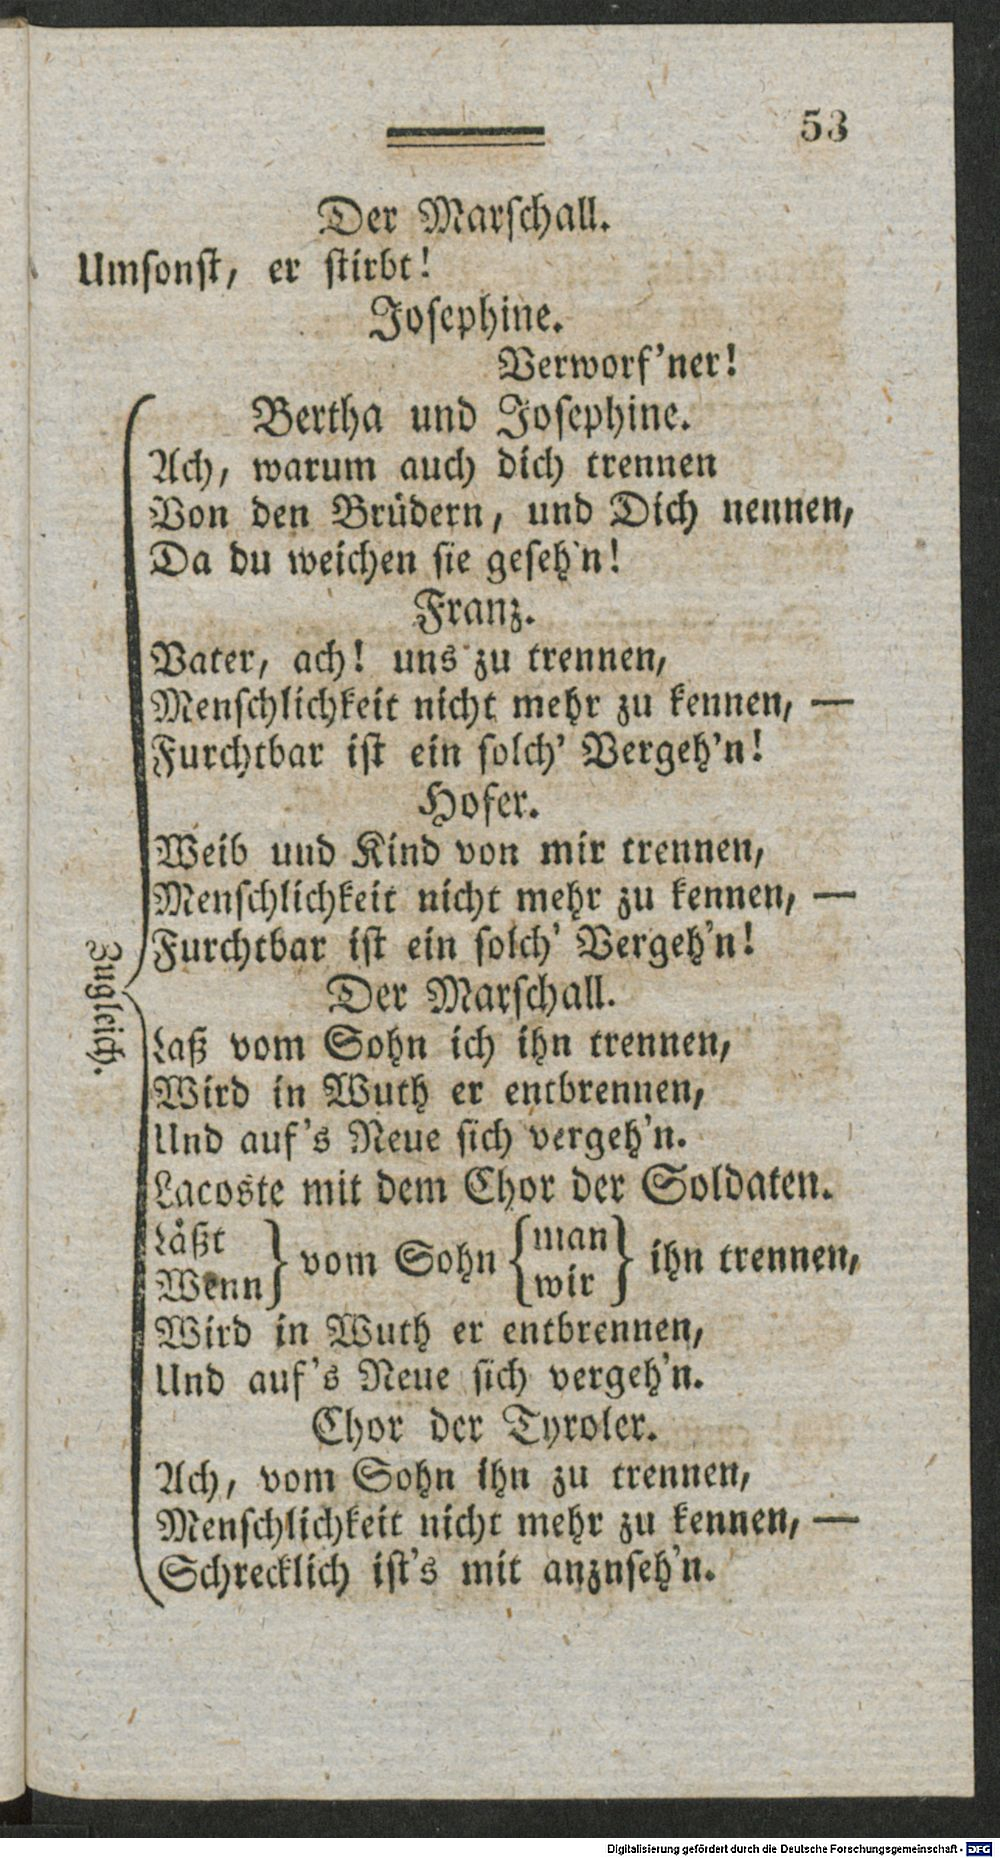 53
Der Marschall.
Umsonst, er stirbt!
Josephine.
Verworf'ner!
Bertha und Josephine.
Ach, warum auch dich trennen
Von den Brüdern, und Dich nennen,
Da du weichen sie geseh'n!
Franz.
Vater, ach! uns zu trennen,
Menschlichkeit nicht mehr zu kennen, —
Furchtbar ist ein solch' Vergeh'n!
Hofer.
Weib und Kind von mir trennen,
Menschlichkeit nicht mehr zu kennen, —
Furchtbar ist ein solch' Vergeh'n!
Zugleich.
Der Marschall.
Laß vom Sohn ich ihn trennen,
Wird in Wuth er entbrennen,
Und auf's Neue sich vergeh'n.
Lacoste mit dem Chor der Soldaten.
Läßt
Wenn } vom Sohn { man
wir } ihn trennen,
Wird in Wuth er entbrennen,
Und auf's Neue sich vergeh'n.
Chor der Tyroler.
Ach, vom Sohn ihn zu trennen,
Menschlichkeit nicht mehr zu kennen, —
Schrecklich ist's mit anznseh'n.
Digitalisierung gefördert durch die Deutsche Forschungsgemeinschaft - DFG